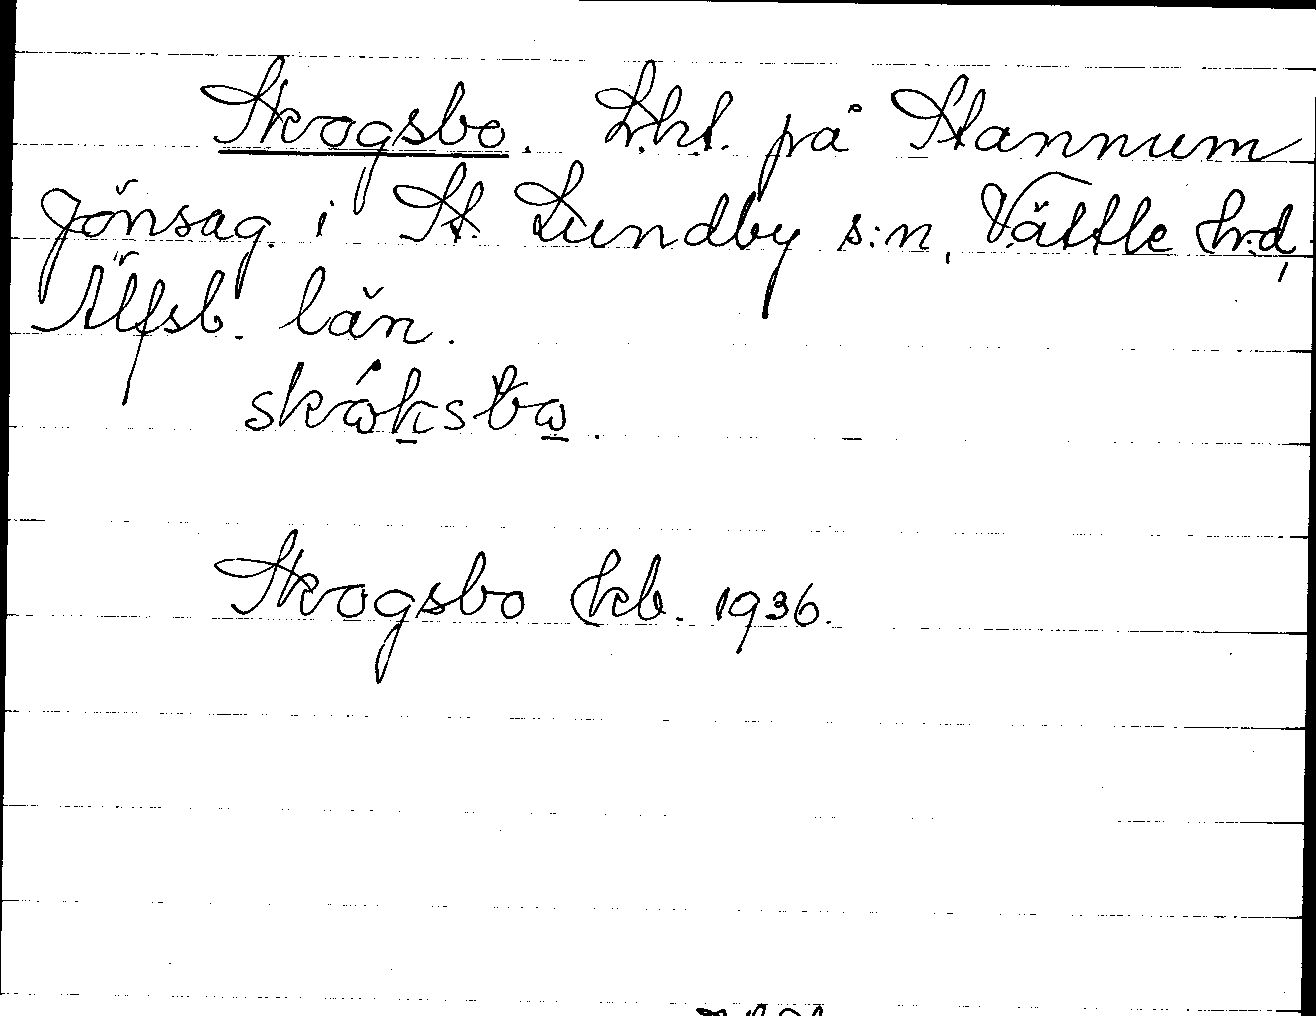 Skogsbo. L.ht. på Stannum
Jönsag. i St. Lundby s:n, Vättle hrd,
Älfsb. län.
Skogsbo hkb. 1936.